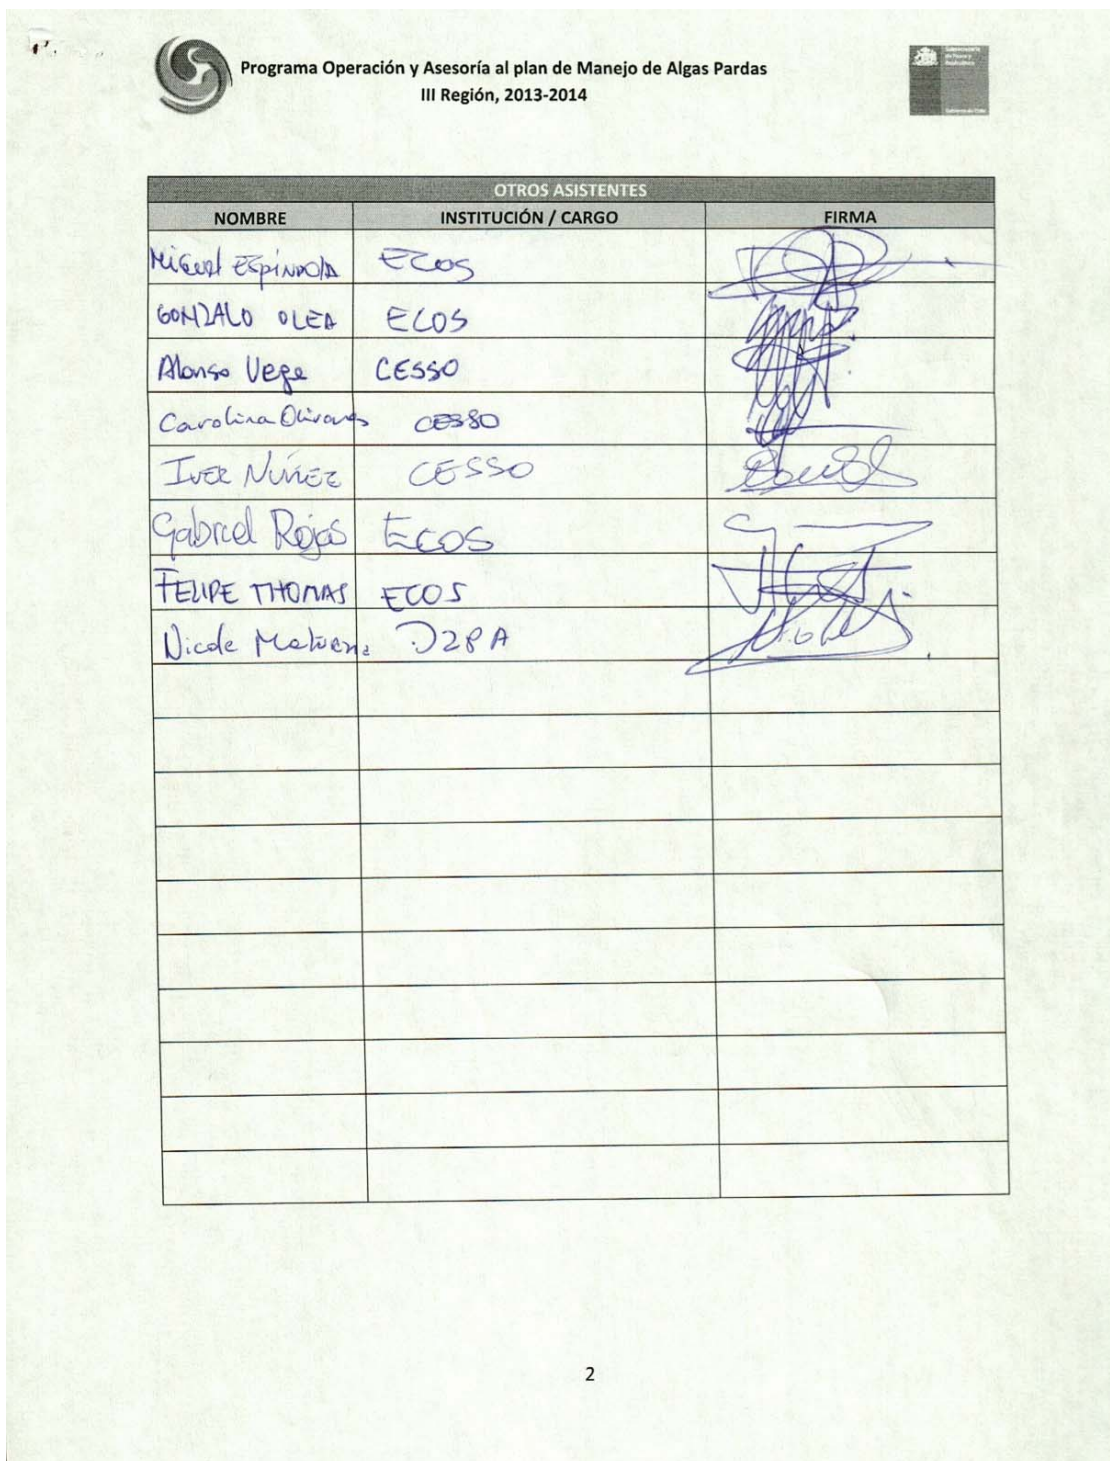 Programa Operación y Asesoría al plan de Manejo de Algas Pardas
III Región, 2013-2014
OTROS ASISTENTES
NOMBRE INSTITUCIÓN / CARGO FIRMA
Miguel Espindola Ecos
GONZALO OLEA ECOS
Alonso Vega CESSO
Carolina Olivares CESSO
IVER NÚÑEZ CESSO
Gabriel Rojas Ecos
FELIPE THOMAS ECOS
Nicole
2